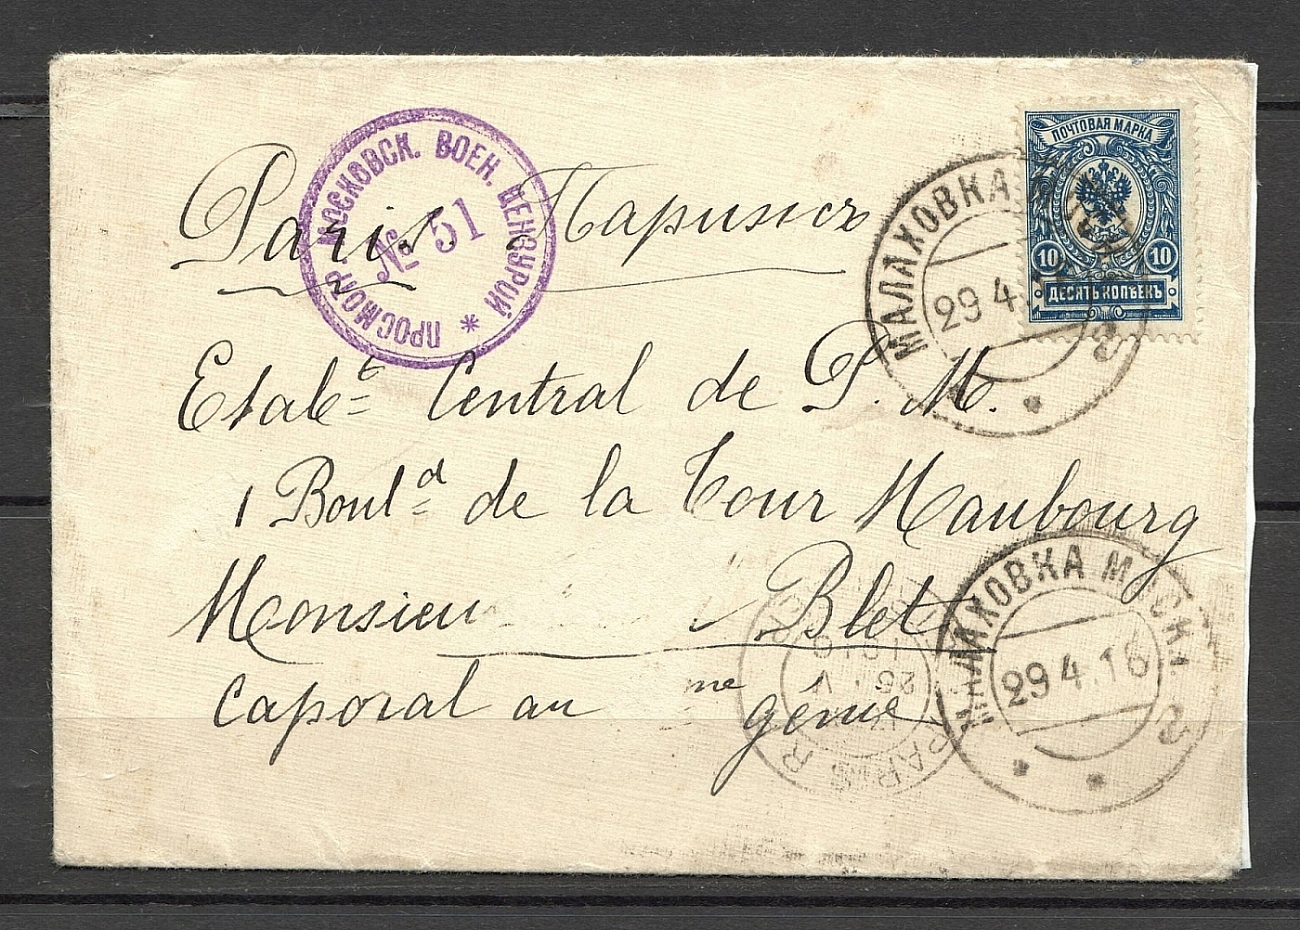 ПОЧТОВАЯ МАРКА
10 10
ДЕСЯТЬ КОПѢЕКЪ
ПРОСМОТР. МОСКОВСК. ВОЕН. ЦЕНЗУРОЙ *
№ 51
МАЛАХОВКА
29 4.
Paris Парижъ
Etabt Central de P. M.
1 Bould de la Tour Maubourg
Monsieu Blet
Caporal au me génie
МАЛАХОВКА МОСК.
29 4.16
PARIS R
25 V
1916